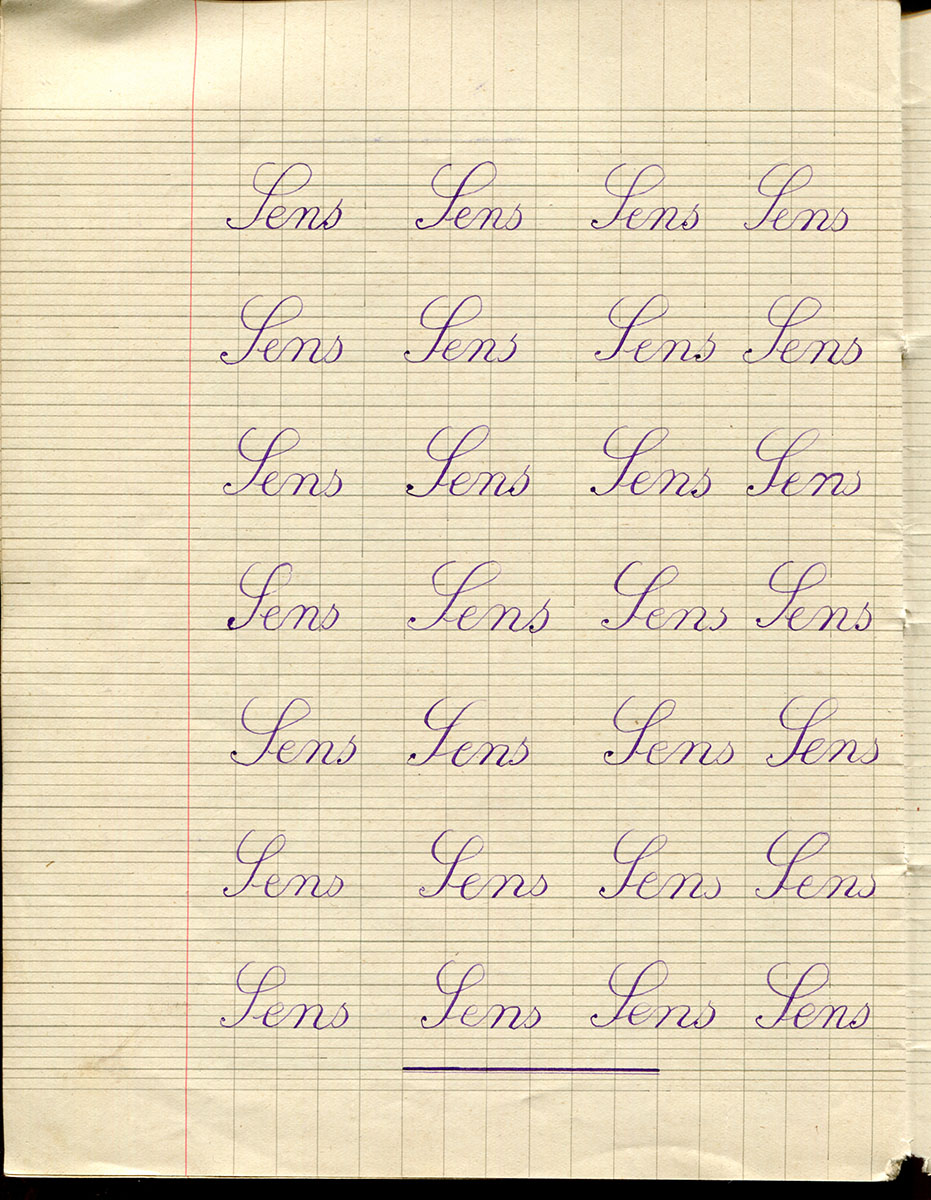 Sens Sens Sens Sens
Sens Sens Sens Sens
Sens Sens Sens Sens
Sens Sens Sens Sens
Sens Sens Sens Sens
Sens Sens Sens Sens
Sens Sens Sens Sens